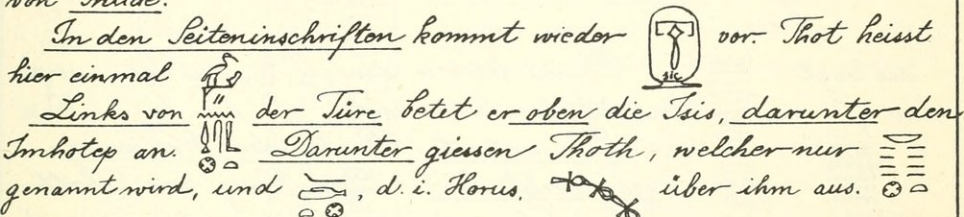 von Thüde.
In den Seiteninschriften kommt wieder sic vor. Thot heisst
hier einmal
Links von der Türe betet er oben die Isis, darunter den
Imhotep an. Darunter giessen Thoth, welcher nur
genannt wird, und , d. i. Horus, über ihm aus.